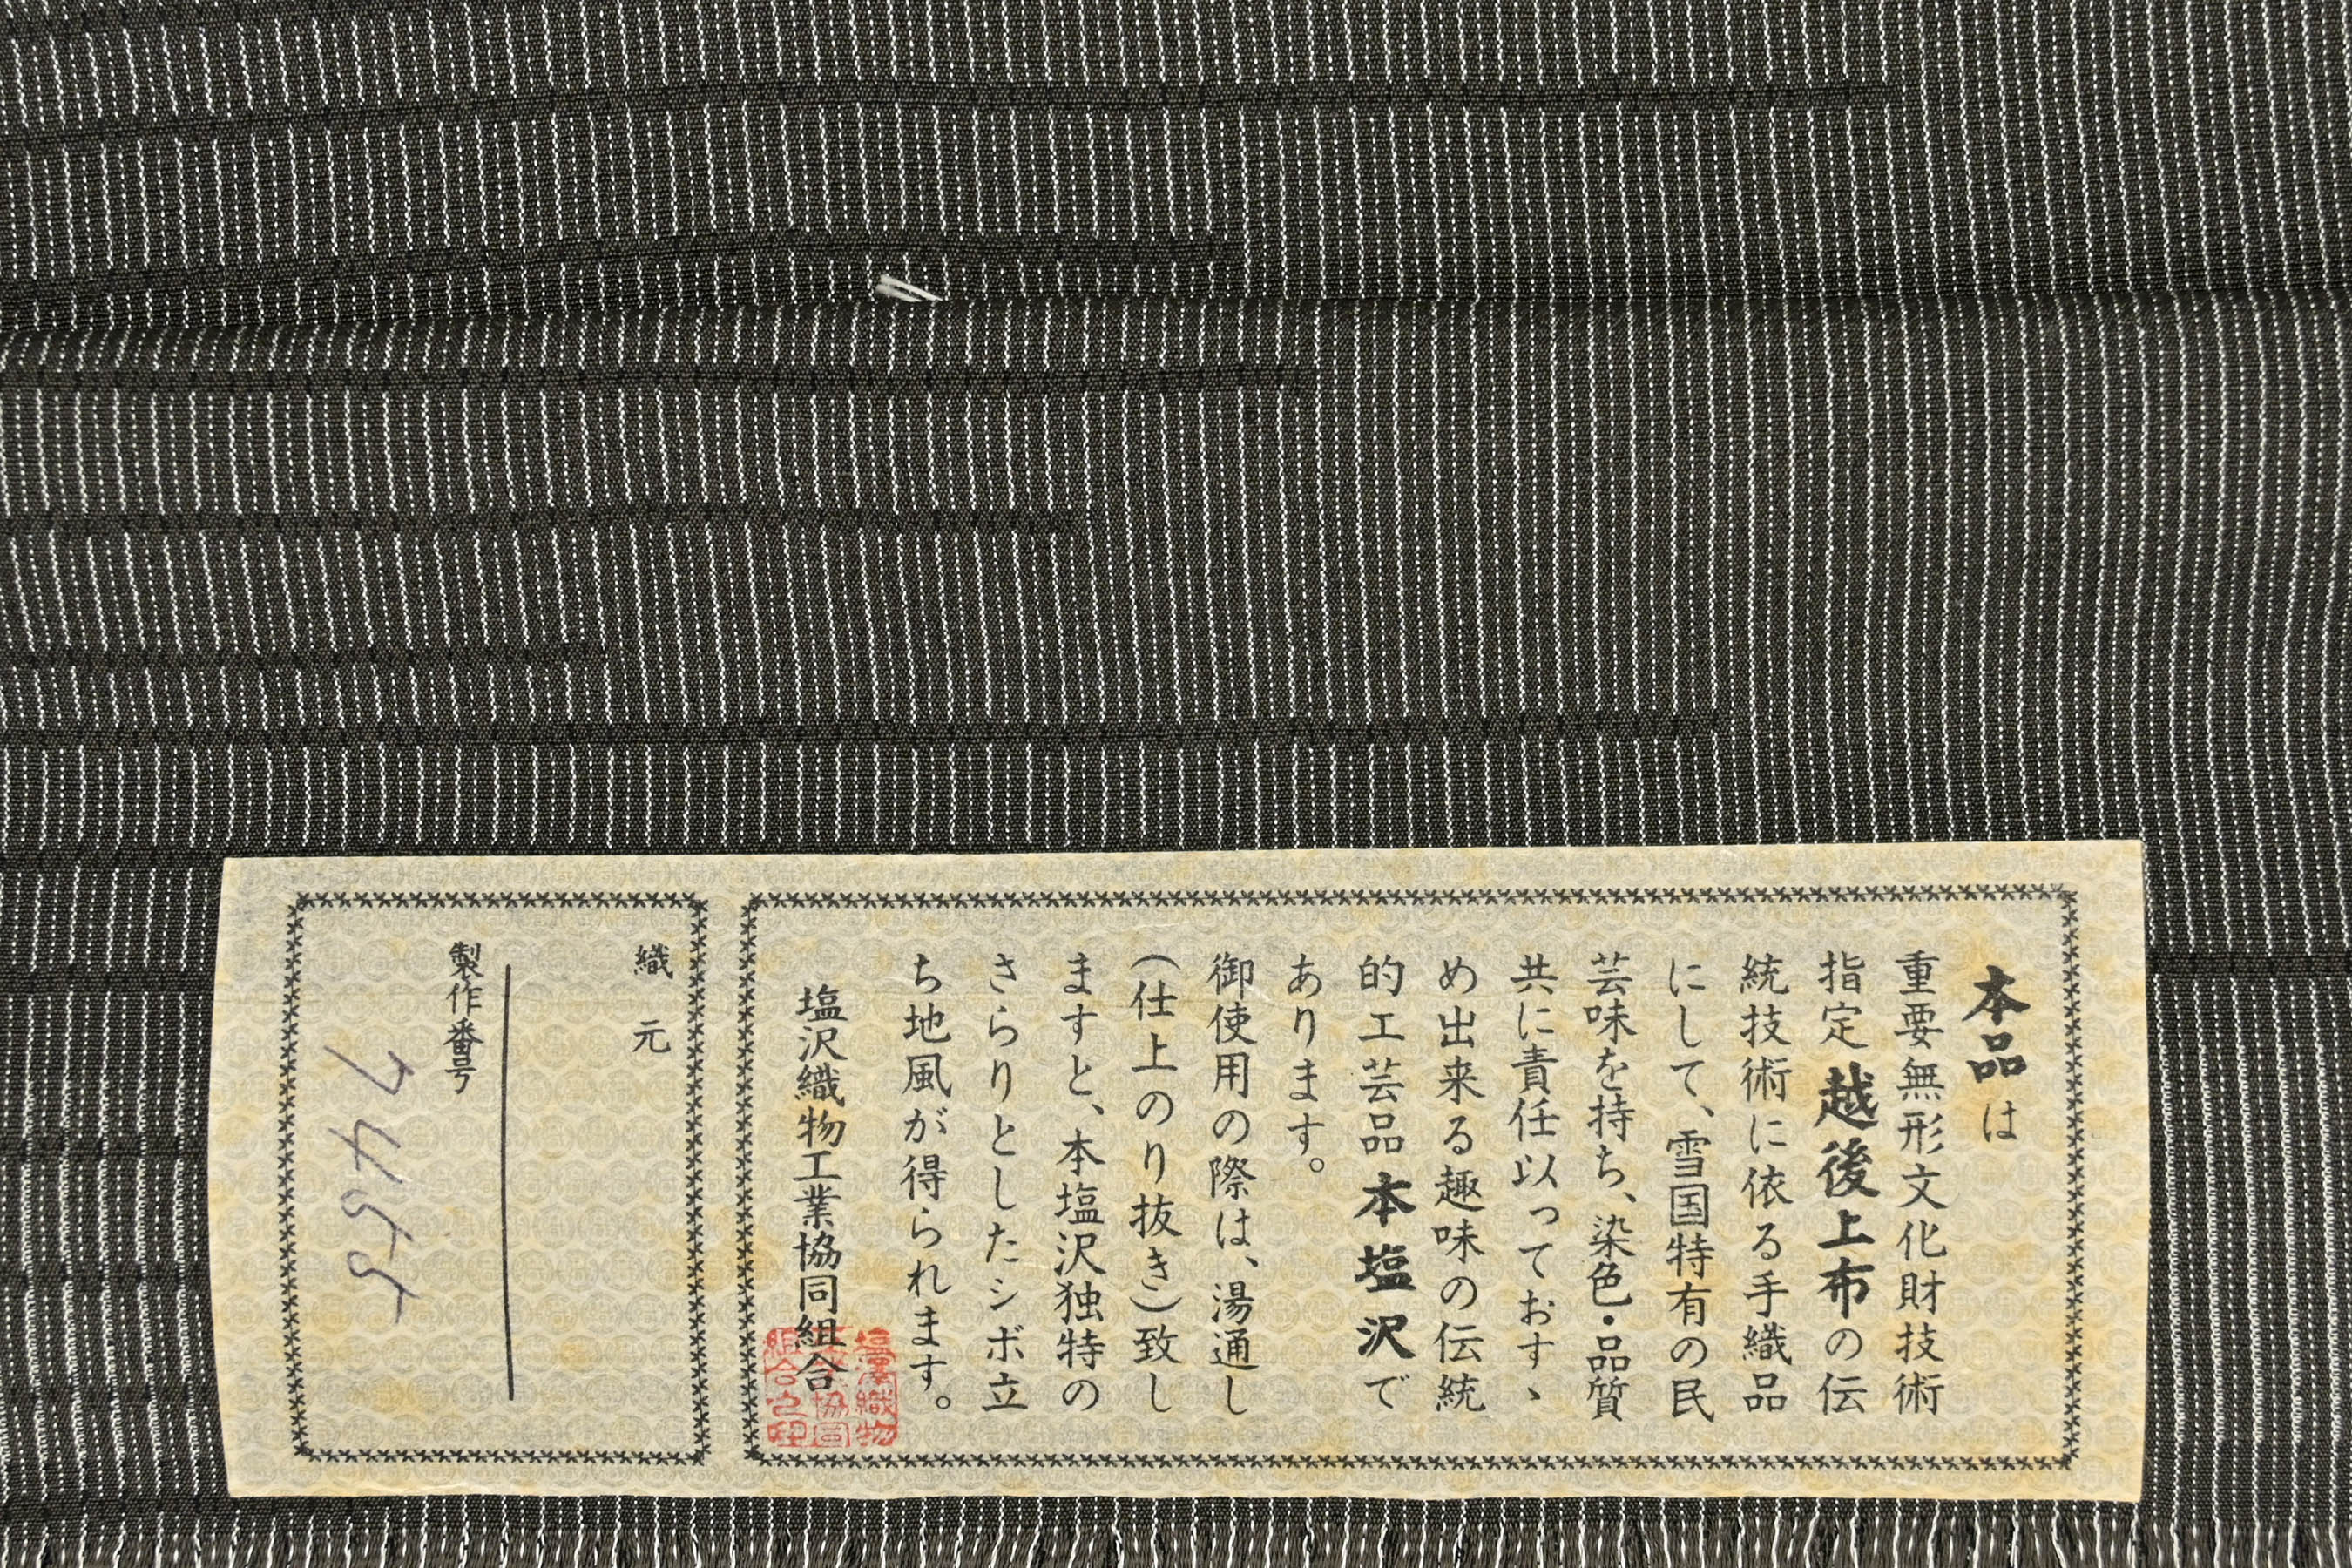 本品は
重要無形文化財技術
指定 越後上布の伝
統技術に依る手織品
にして、雪国特有の民
芸味を持ち、染色・品質
共に責任以っておすゝ
め出来る趣味の伝統
的工芸品 本塩沢で
あります。
御使用の際は、湯通し
(仕上のり抜き)致し
ますと、本塩沢独特の
さらりとしたシボ立
ち地風が得られます。
塩沢織物工業協同組合
織元
製作番号